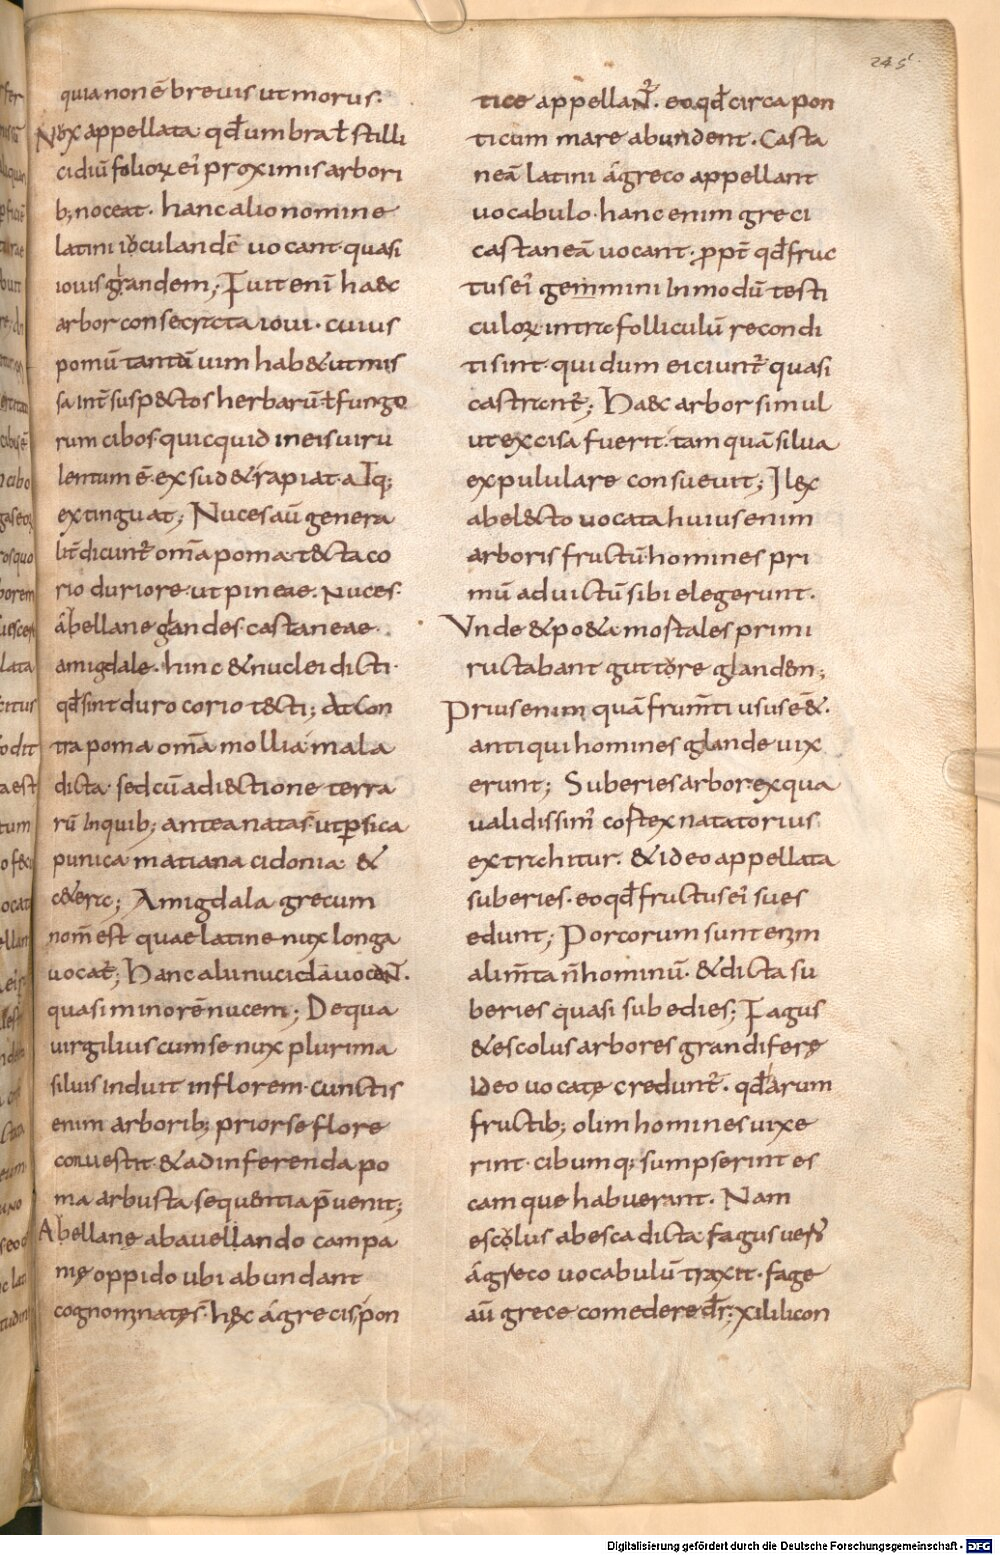 245
quia non ē breuis ut morus:
Nux appellata qđ umbra ł stilli
cidiū folioꝝ ei᾽ proximis arbori
b; noceat. hanc alio nomine
latini iuculandē uocant. quasi
iouis glandem; Fuit enī haec
arbor consecrata ioui. cuius
pomū tantā uim hab& ut mis
sa int̄ suspectos herbarū ł fungo
rum cibos quicquid in eis uiru
lentum ē. exsud& rapiat. atq;
extinguat; Nuces aū genera
lit̄ dicunt᾽ om̄a poma tecta co
rio duriore. ut pineae. nuces.
abellane glandes. castaneae.
amigdale. hinc & nuclei dicti.
qđ sint duro corio tecti; At con
tra poma om̄a mollia mala
dicta. sed cū adiectione terra
rū In quib; antea nata s̄. ut ꝑsica
punica matiana cidonia &
c&era; Amigdala grecum
nom̄ est quae latine nux longa
uocat᾽; Hanc alii nuciclā uocant.
quasi minorē nucem; De qua
uirgilius cum se nux plurima
siluis induit in florem. cunctis
enim arborib; prior se flore
conuestit. & ad inferenda po
ma arbusta sequentia p̄uenit;
Abellanę ab auellando campa
nię oppido ubi abundant
cognominatę s̄. hęc á grecis pon
tice appellant᾽. eo qđ circa pon
ticum mare abundent. Casta
neā latini á greco appellant
uocabulo. hanc enim greci
castaneā uocant. ꝓpt̄ qđ fruc
tus ei᾽ gemmini In modū testi
culoꝝ intra folliculū recondi
ti sint. qui dum eiciunt᾽ quasi
castrent᾽; Haec arbor simul
ut excisa fuerit. tam quā silua
expululare consueuit; Ilex
ab electo uocata huius enim
arboris fructū homines pri
mū ad uictū sibi elegerunt.
Unde & po&a mortales primi
ructabant gutture glandem;
Prius enim quā frum̄ti usus eē&.
antiqui homines glande uix
erunt; Suberies arbor. ex qua
ualidissim᾽ cortex natatorius
extrahitur. & ideo appellata
suberies. eo qđ fructus ei᾽ sues
edunt; Porcorum sunt enim
alim̄ta ñ hominū. & dicta su
beries quasi subedies; Fagus
& escolus arbores grandiferę
Ideo uocatę credunt᾽. qđ arum
fructib; olim homines uixe
rint. cibumq; sumpserint es
camque habuerant. Nam
esculus ab esca dicta. fagus uero
á greco uocabulū traxit. fage
aū grece comedere dr̄; xililicon
Digitalisierung gefördert durch die Deutsche Forschungsgemeinschaft - DFG